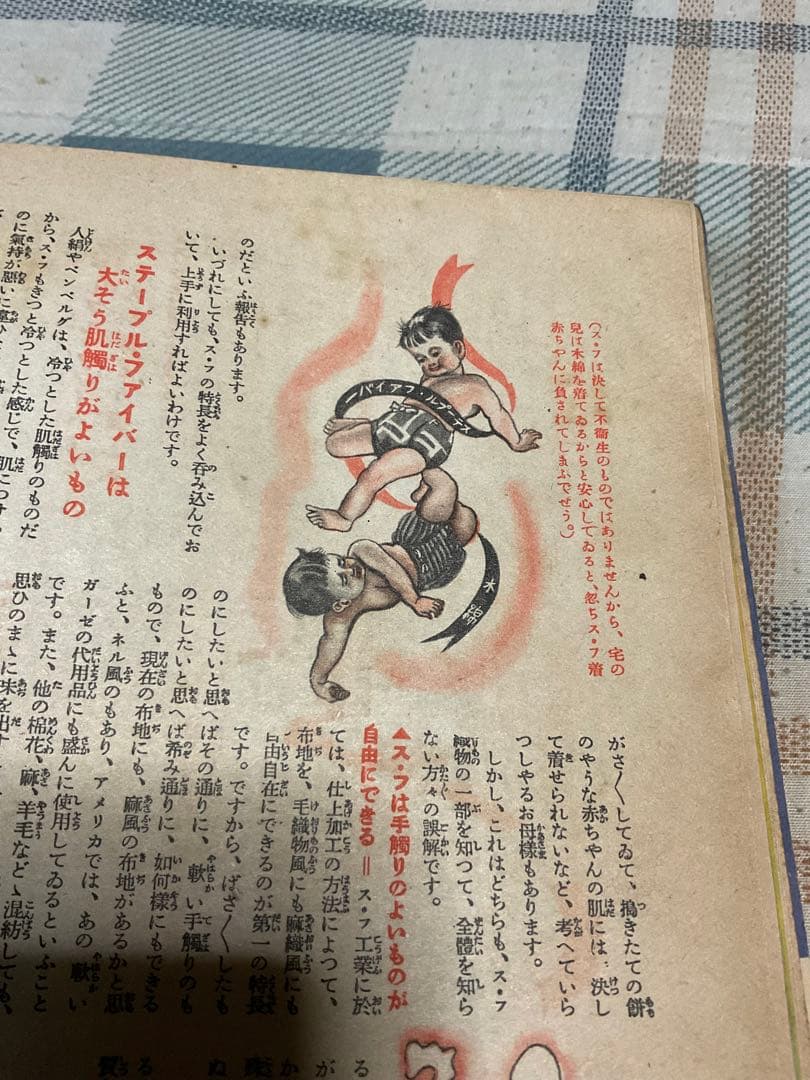 がさ〱してゐて、搗きたての餅
のやうな赤ちやんの肌には、決し
て着せられないなど、考へていら
つしやるお母様もあります。
しかし、これはどちらも、ス・フ
織物の一部を知つて、全體を知ら
ない方々の誤解です。
▲ス・フは手觸りのよいものが
自由にできる＝ス・フ工業に於
ては、仕上加工の方法によつて、
布地を、毛織物風にも麻織風にも
自由自在にできるのが第一の特長
です。ですから、ばさ〱したも
のにしたいと思へばその通りに、軟い手觸りのも
のにしたいと思へば希み通りに、如何様にもできる
もので、現在の布地にも、麻風の布地があるかと思
ふと、ネル風のもあり、アメリカでは、あの軟い
ガーゼの代用品にも盛んに使用してゐるといふこと
です。また、他の棉花、麻、羊毛などゝ混紡しても、
思ひのまゝに味を出す
（ス・フは決して不衞生のものではありませんから、宅の
兒は木綿を着てゐるからと安心してゐると、忽ちス・フ着
赤ちやんに負されてしまふでせう。）
ステープル・ファイバー
木綿
のだといふ報告もあります。
いづれにしても、ス・フの特長をよく呑み込んでお
いて、上手に利用すればよいわけです。
ステープル・ファイバーは
大そう肌觸りがよいもの
人絹やベンベルグは、冷つとした肌觸りのものだ
から、ス・フもきつと冷つとした感じで、肌につ
のに氣持が惡い